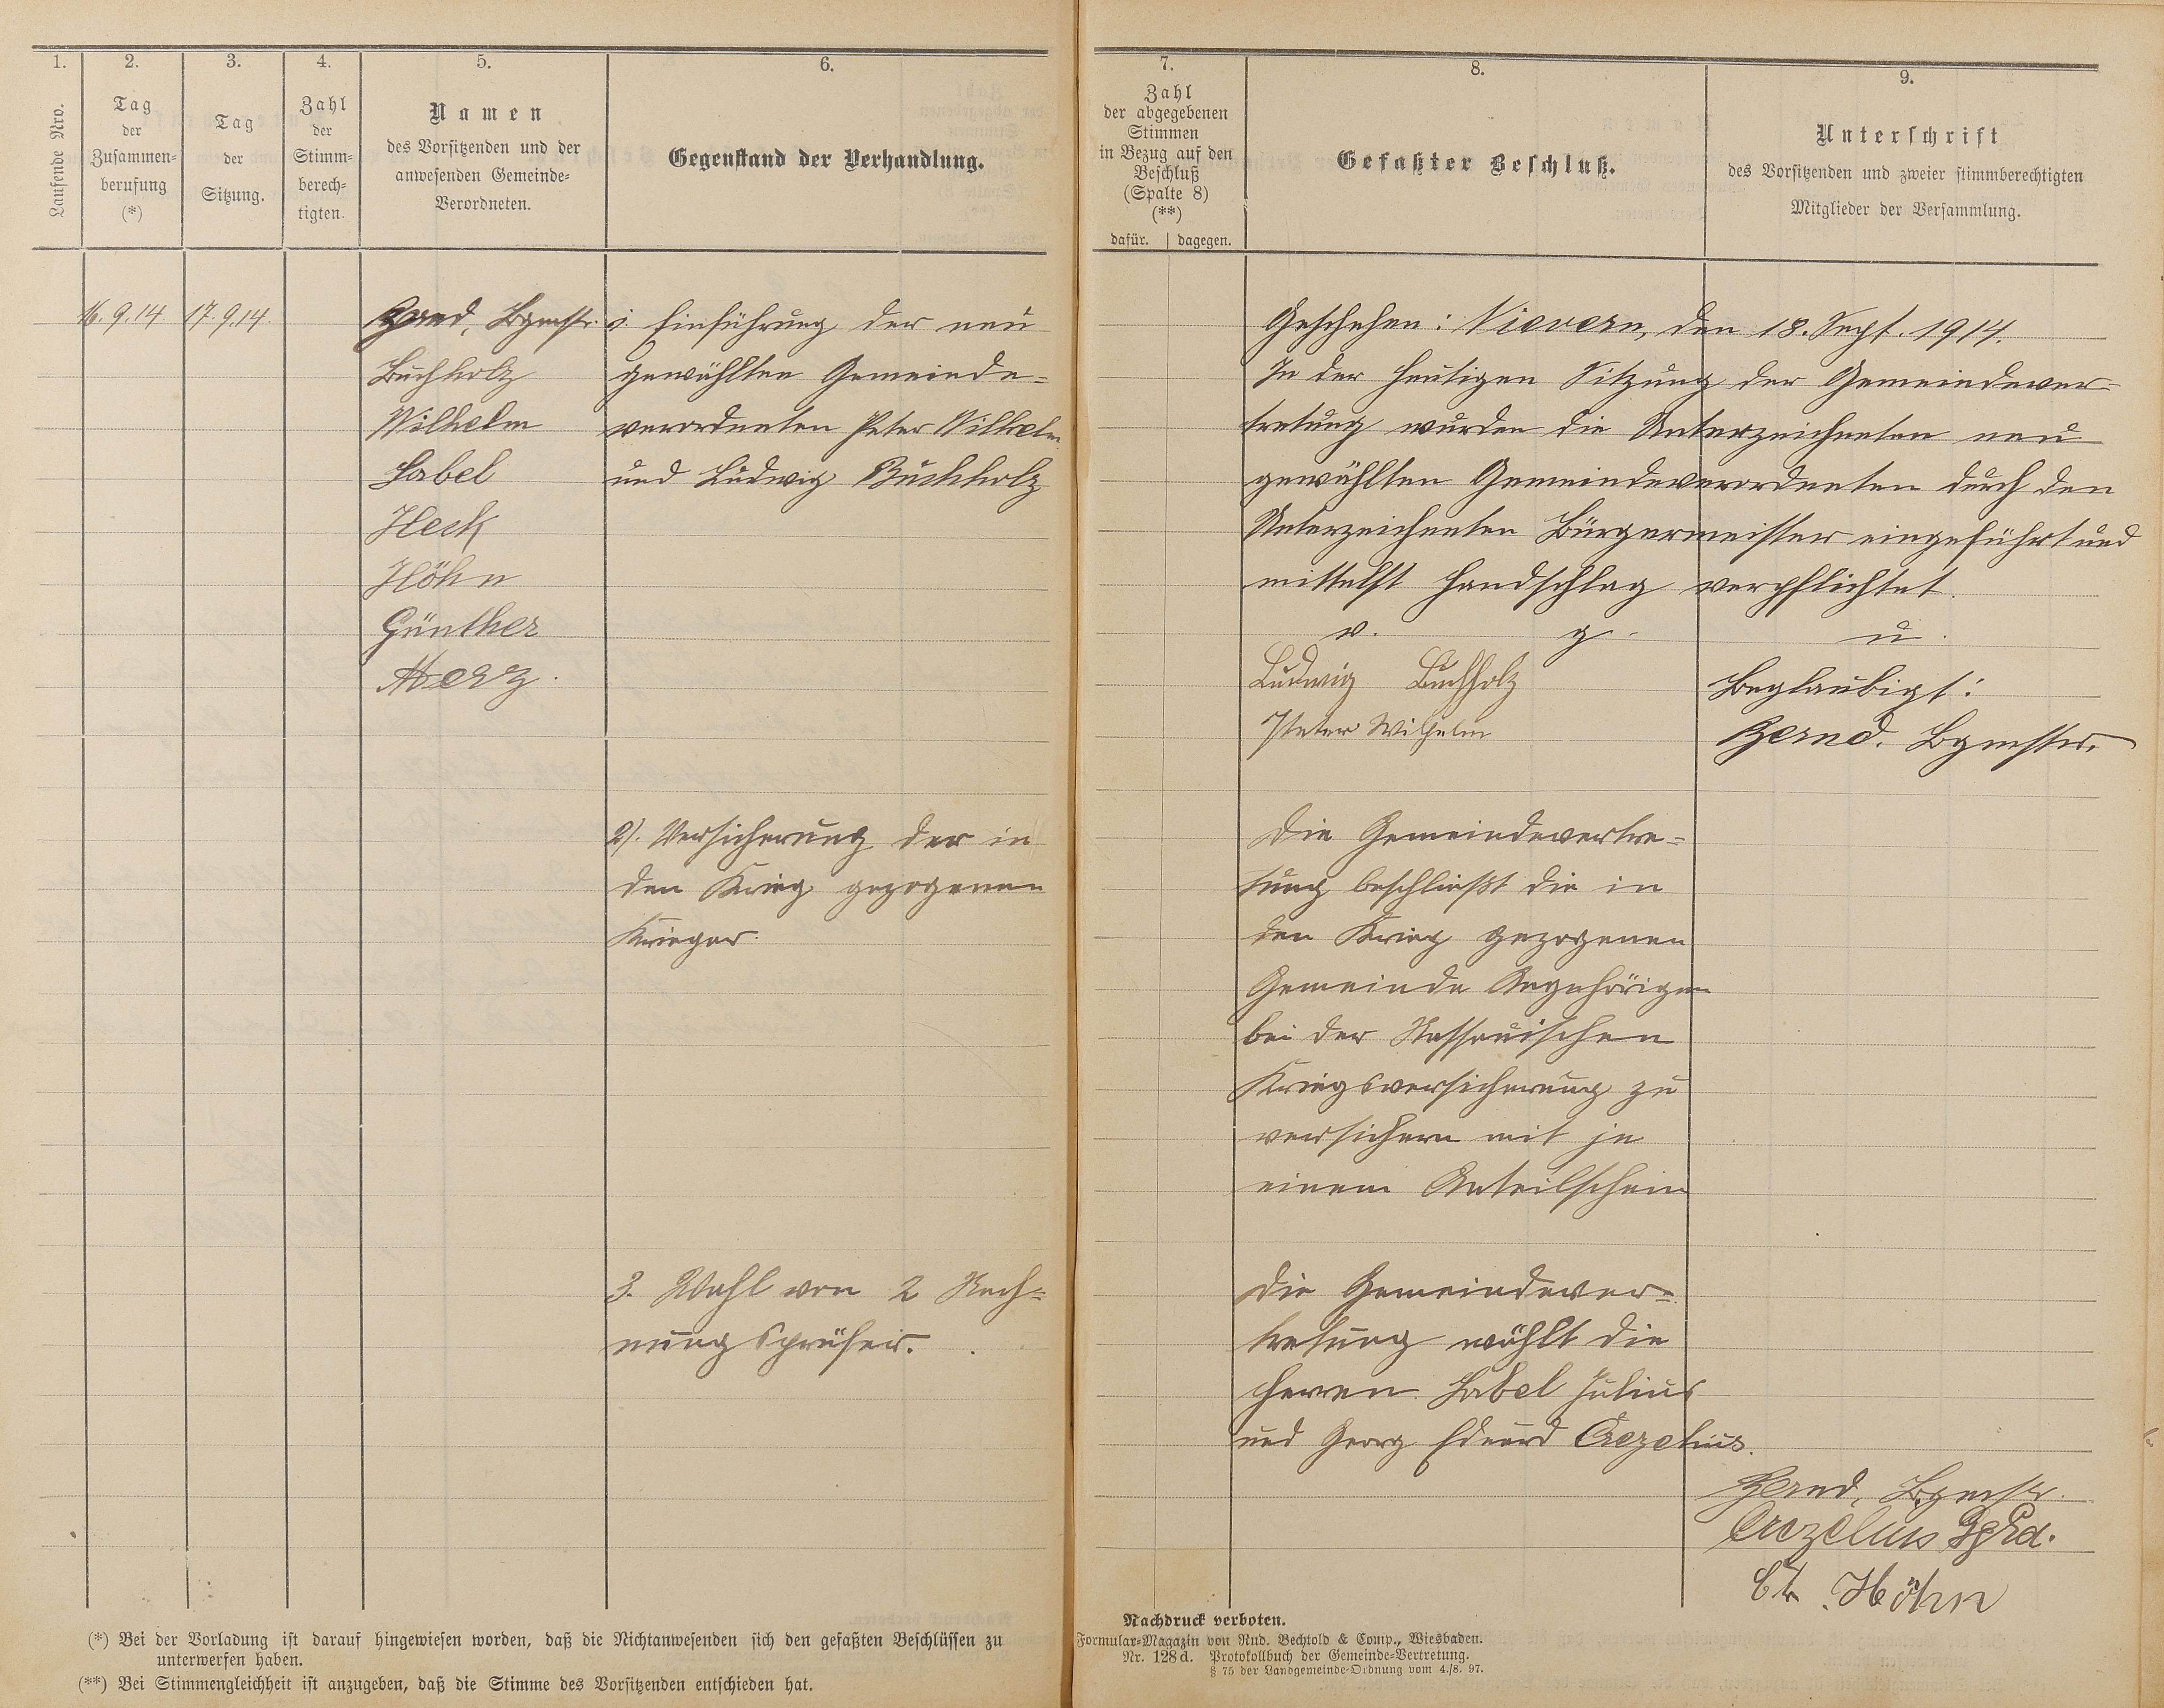 1.
Laufende Nro.
2.
Tag
der
Zusammen-
berufung
(*)
3.
Tag
der
Sitzung.
4.
Zahl
der
Stimm-
berech-
tigten.
5.
Namen
des Vorsitzenden und der
anwesenden Gemeinde-
Verordneten.
6.
Gegenstand der Verhandlung.
16.9.14 17.9.14
Bernd, Bgmstr.
Buchholz
Wilhelm
Label
Heck
Höhn
Günther
Herz.
1. Einführung der neu
gewählten Gemeinde-
verordneten Peter Wilhelm
und Ludwig Buchholz
2). Versicherung der in
den Krieg gezogenen
Krieger.
3. Wahl von 2 Rech-
nungsprüfer.
(*) Bei der Vorladung ist darauf hingewiesen worden, daß die Nichtanwesenden sich den gefaßten Beschlüssen zu
unterwerfen haben.
(**) Bei Stimmengleichheit ist anzugeben, daß die Stimme des Vorsitzenden entschieden hat.
7.
Zahl
der abgegebenen
Stimmen
in Bezug auf den
Beschluß
(Spalte 8)
(**)
dafür. dagegen.
8.
Gefaßter Beschluß.
9.
Unterschrift
des Vorsitzenden und zweier stimmberechtigten
Mitglieder der Versammlung.
Geschehen: Nievern, den 18. Sept. 1914.
In der heutigen Sitzung der Gemeindever-
tretung wurden die Unterzeichneten neu
gewählten Gemeindeverordneten durch den
Unterzeichneten Bürgermeister eingeführt und
mittelst Handschlag verpflichtet.
v. g. u.
Ludwig Buchholz
Peter Wilhelm
Beglaubigt:
Bernd. Bgmstr.
Die Gemeindevertre-
tung beschließt die in
den Krieg gezogenen
Gemeinde Angehörigen
bei der Nassauischen
Kriegsversicherung zu
versichern mit je
einem Anteilschein
Die Gemeindever-
tretung wählt die
Herren Label Julius
und Georg Eduard Crezelius.
Bernd, Bgmstr.
Crezelius Gg Ed.
Höhn
Nachdruck verboten.
Formular-Magazin von Rud. Bechtold & Comp., Wiesbaden.
Nr. 128d. Protokollbuch der Gemeinde-Vertretung.
§ 75 der Landgemeinde-Ordnung vom 4./8. 97.